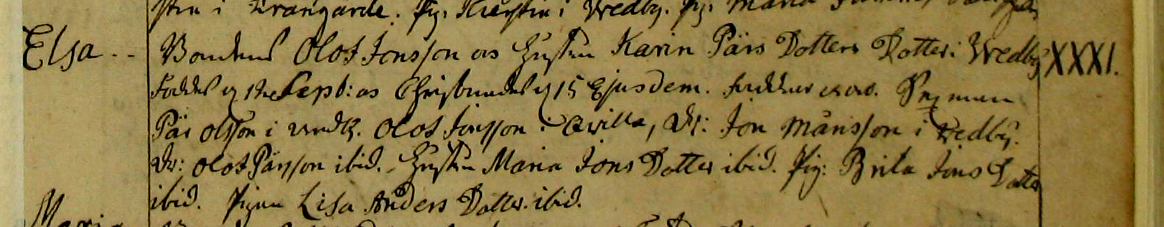 stin i Krangärde. Pig: Kierstin i Wedby. Pig: Maria
Elsa -- Bondens Olof Jonsson os Hustru Karin Pärs Dotters Dotter i Wedby XXXI.
föddes d 12 Sept: os Christnades d 15 Ejusdem.
Pär Olsson i Olof Jönsson i Dr: Jon Månsson i Wedby.
Dr: Olof Pärsson ibid. Hustru Maria Jons Dotter ibid. Pig: Brita Jons Dotter
ibid. Pigan Lisa Anders Dotter ibid.
Maria